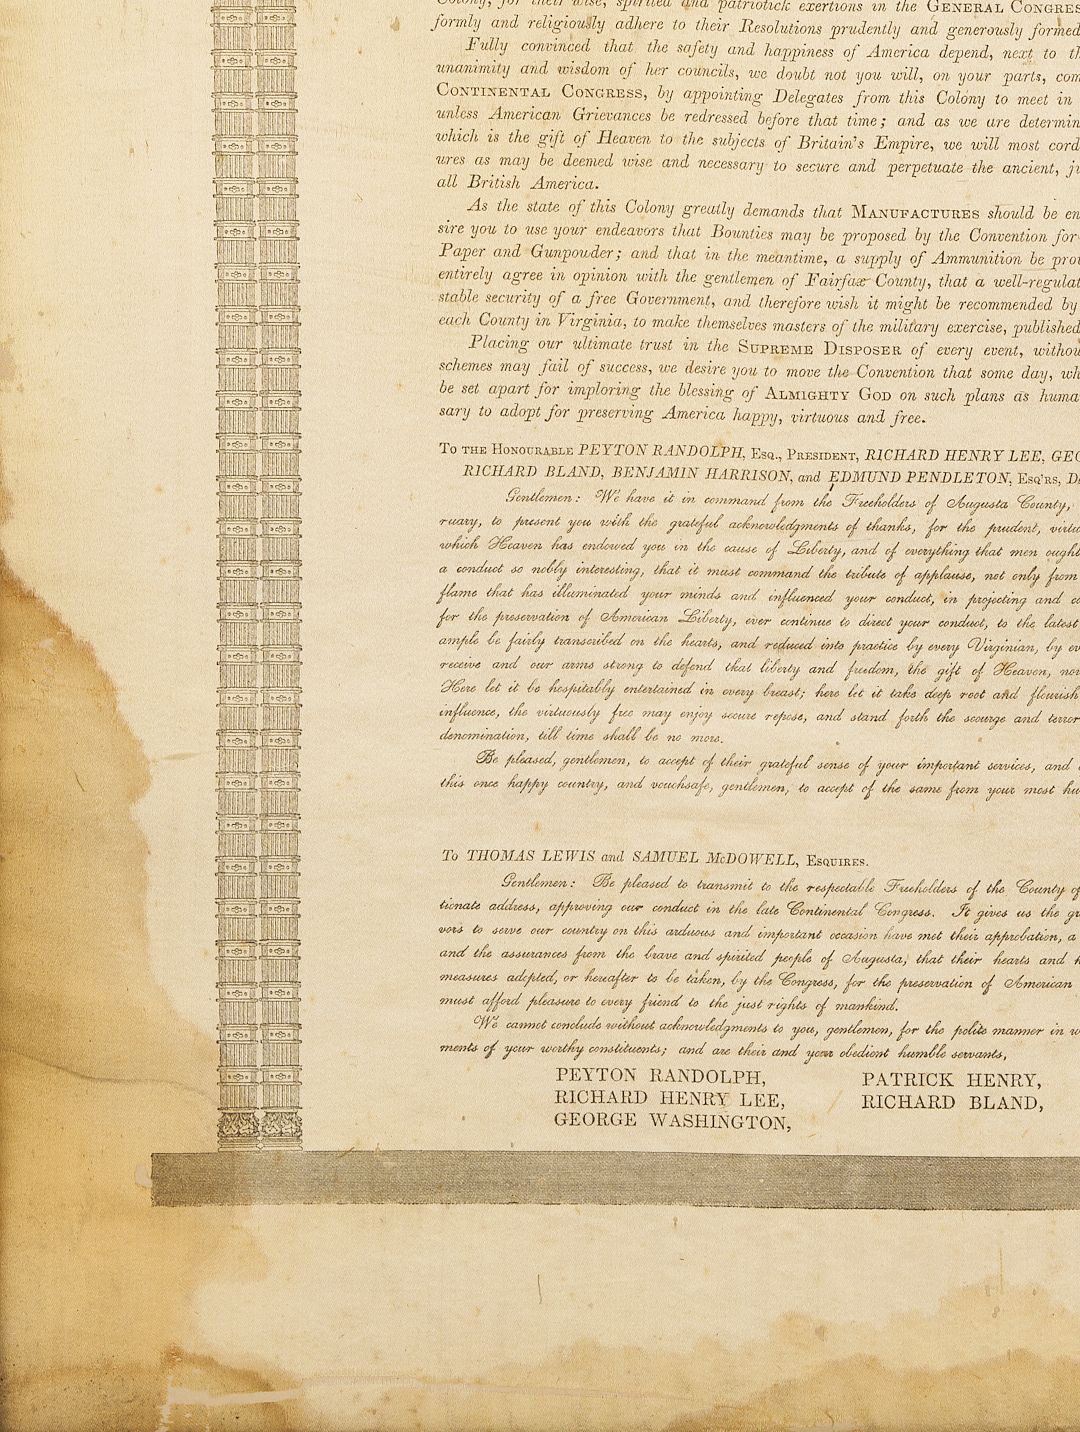 Colony, for their wise, spirited and patriotick exertions in the GENERAL CONGRES
formly and religiously adhere to their Resolutions prudently and generously formed
Fully convinced that the safety and happiness of America depend, next to th
unanimity and wisdom of her councils, we doubt not you will, on your parts, com
CONTINENTAL CONGRESS, by appointing Delegates from this Colony to meet in
unless American Grievances be redressed before that time; and as we are determin
which is the gift of Heaven to the subjects of Britain's Empire, we will most cord
ures as may be deemed wise and necessary to secure and perpetuate the ancient, ju
all British America.
As the state of this Colony greatly demands that MANUFACTURES should be en
sire you to use your endeavors that Bounties may be proposed by the Convention for
Paper and Gunpowder; and that in the meantime, a supply of Ammunition be prov
entirely agree in opinion with the gentlemen of Fairfax County, that a well-regulat
stable security of a free Government, and therefore wish it might be recommended by
each County in Virginia, to make themselves masters of the military exercise, published
Placing our ultimate trust in the SUPREME DISPOSER of every event, withou
schemes may fail of success, we desire you to move the Convention that some day, wh
be set apart for imploring the blessing of ALMIGHTY GOD on such plans as huma
sary to adopt for preserving America happy, virtuous and free.
TO THE HONOURABLE PEYTON RANDOLPH, ESQ., PRESIDENT, RICHARD HENRY LEE, GEO
RICHARD BLAND, BENJAMIN HARRISON, and EDMUND PENDLETON, ESQ'RS, DE
Gentlemen: We have it in command from the Freeholders of Augusta County,
ruary, to present you with the grateful acknowledgments of thanks, for the prudent, virtu
which Heaven has endowed you in the cause of Liberty, and of everything that men ought
a conduct so nobly interesting, that it must command the tribute of applause, not only from
flame that has illuminated your minds and influenced your conduct, in projecting and co
for the preservation of American Liberty, ever continue to direct your conduct, to the latest
ample be fairly transcribed on the hearts, and reduced into practice by every Virginian, by ev
receive and our arms strong to defend that liberty and freedom, the gift of Heaven, now
Here let it be hospitably entertained in every breast; here let it take deep root and flourish
influence, the virtuously free may enjoy secure repose, and stand forth the scourge and terror
denomination, till time shall be no more.
Be pleased, gentlemen, to accept of their grateful sense of your important services, and
this once happy country, and vouchsafe, gentlemen, to accept of the same from your most hu
To THOMAS LEWIS and SAMUEL McDOWELL, ESQUIRES.
Gentlemen: Be pleased to transmit to the respectable Freeholders of the County of
tionate address, approving our conduct in the late Continental Congress. It gives us the gr
vors to serve our country on this arduous and important occasion have met their approbation, a
and the assurances from the brave and spirited people of Augusta, that their hearts and h
measures adopted, or hereafter to be taken, by the Congress, for the preservation of American
must afford pleasure to every friend to the just rights of mankind.
We cannot conclude without acknowledgments to you, gentlemen, for the polite manner in w
ments of your worthy constituents; and are their and your obedient humble servants,
PEYTON RANDOLPH, PATRICK HENRY,
RICHARD HENRY LEE, RICHARD BLAND,
GEORGE WASHINGTON,